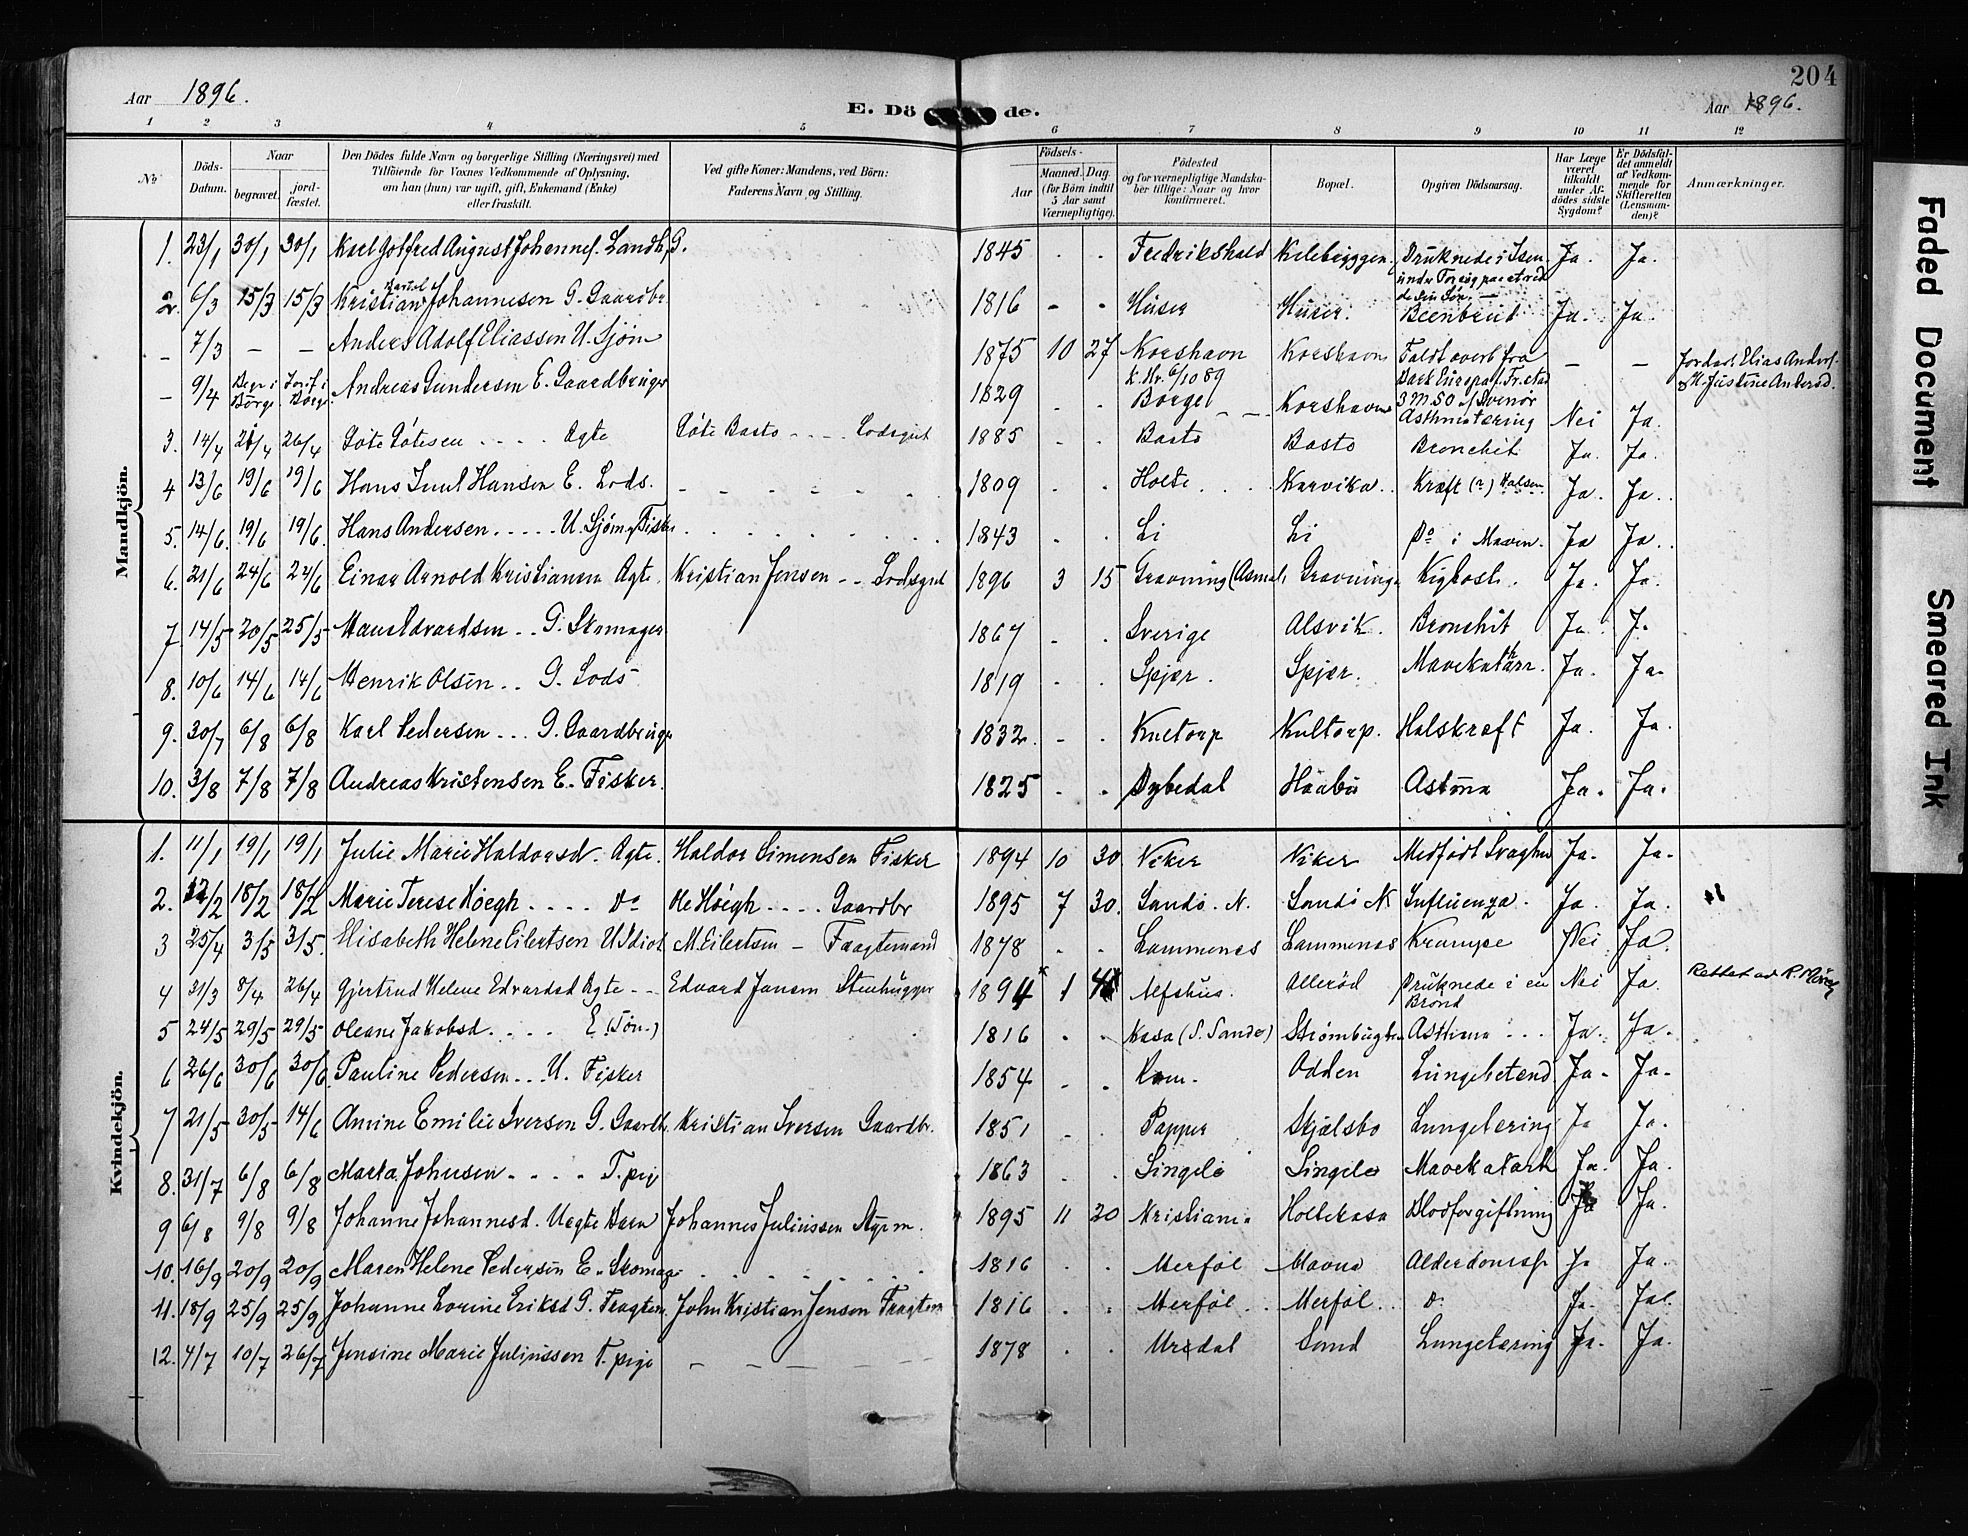 204
Aar 1896.
E. Döde.
Aar 1896.
1 2 3 4 5 6 7 8 9 10 11 12
No
Döds-Datum.
Naar
begravet.
jordfæstet.
Den Dödes fulde Navn og borgerlige Stilling (Næringsvei) med
Tilföiende for Voxnes Vedkommende af Oplysning,
om han (hun) var ugift, gift, Enkemand (Enke)
eller fraskilt.
Ved gifte Koner: Mandens, ved Börn:
Faderens Navn og Stilling.
Födsels-
Aar
Maaned. Dag.
(for Börn indtil
5 Aar samt
Værnepligtige).
Födested
og for værnepligtige Mandskaber tillige: Naar og hvor
konfirmeret.
Bopæl.
Opgiven Dödsaarsag.
Har Læge
været
tilkaldt
under Afdödes sidste
Sygdom?
Er Dödsfaldet anmeldt
af Vedkommende for
Skifteretten
(Lensmanden)?
Anmærkninger.
Mandkjön.
1. 23/1 30/1 30/1 Karl Gotfred August Johannes. Landh. G. 1845 . . Fredrikshald Kilebryggen. Druknede i Isen Ja. Ja.
under Forsøg paa at red
de sin Søn. —
2. 6/3 15/3 15/3 Kristian Johannesen G. Gaardbr. 1816 - - Huser Huser. Beenbrud Ja. Ja.
– 7/3 – – Anders Adolf Eliassen U. Sjöm 1875 10 27 Korshavn Korshavn Faldt overb fra – – Jordart. Elias Anders.
K. Kr. 6/10 89 Bark Europa f. Fr.stad & H. Justine Andersd.
– 9/4 Begr i Börge Jordf i Börge. Andreas Gundersen E. Gaardbruger 1829 . . Borge Korshavn Asthmatæring Nei Ja.
3. 14/4 21/4 26/4 Göte Götesen .... Ægte Göte Basto – – – Lodsgut 1885 . . Basto Basto Bronchit Ja. Ja.
4 13/6 19/6 19/6 Hans Juul Hansen E. Lods. 1809 . . Holte Karvika.. Kræft (i) Halsen Ja. Ja.
5. 14/6. 19/6 19/6. Hans Andersen ..... U. Sjöm. Fisker 1843 . . Li Li Do i Maven. Ja Ja..
6. 21/6 24/6 24/6 Einar Arnold Kristiansen Ægte. Kristian Jensen – – Lodsgut 1896 3 15 Gravning (Asmal. Gravning. Kighoste. Ja. Ja.
7. 14/5 20/5 25/5 Hans Edvardsen – – G. Skomager 1867 . . Sverige Alsvik. Bronchit Ja. Ja.
8. 10/6 14/6 14/6 Henrik Olsen .. G. Lods 1819 . . Spjær. Spjær. Mavekatarr. Ja. Ja.
9. 30/7 6/8 6/8 Karl Pedersen ... G. Gaardbruger 1832 . . Kultorp Kultorp. Halskræft Ja. Ja.
10. 3/8 7/8 7/8 Andreas Kristensen E. Fisker. 1825 . . Dybedal Haabu Astma Ja. Ja.
Kvindekjön.
1. 11/1 19/1 19/1 Julie Marie Haldorsd. Ægte. Haldor Simensen Fisker 1894 10 30 Viker Viker Medfødt Svaghed Ja. Ja.
2. 12/2 18/2 18/2 Marie Terese Höegh .... Do Ole Höegh .... Gaardbr 1895 7 30. Sandö. N. Sandö N Influenza. Ja. Ja.
3 25/4 3/5 3/5. Elisabeth Helene Eilertsen U Idiot M. Eilertsen – Fragtemand 1878 . . Lammenes Lammenes Krampe Nei Ja.
4 31/3 8/4 26/4 Gjertrud Helene Edvardsd Ægte – – Edvard Jansen Stenhugger 1894 1 4 Alfshus. Alleröd Druknede i en Brönd Nei Ja. Rettet av R. Mörch
5 24/5 29/5 29/5 Oleane Jakobsd. ... E (Tön.) 1816 . . Kasa (S. Sandö) Strömbugten Asthma ... Ja. Ja.
6 26/6 30/6 30/6. Pauline Pedersen ... U. Fisker 1854 . . Rom. Odden Lungebetænd Ja. Ja.
7 21/5 30/5 14/6 Amine Emilie Iversen G. Gaardbr. Kristian Iversen Gaardbr. 1851 . . Papper Skjælsbo Lungetæring Ja Ja.
8. 31/7 6/8 6/8 Marta Johnsen .... T. pig 1863 . . Singelö Singelö Mavekatarh Ja. Ja.
9 6/8 9/8 9/8 Johanne Johannesd. Uægte Barn Johannes Juliussen Styrm. 1895 11 20 Kristiania Holtekasa Blodforgiftning Ja Ja.
10. 16/9 20/9 20/9 Maren Helene Pedersen E. Skomag. 1816 . . Merföl Mavna Alderdomssl. Ja Ja.
11. 18/9 25/9 25/9 Johanne Lovine Eriksd G. Fragtem. John Kristian Jensen Fragtem 1816 . . Merföl.. Merföl. Do Ja. Ja.
12. 4/7 10/7 26/7 Jensine Marie Juliussen T. pige 1878 . . Uredal Sand Lungetæring Ja. Ja.
Faded Document
Smeared Ink